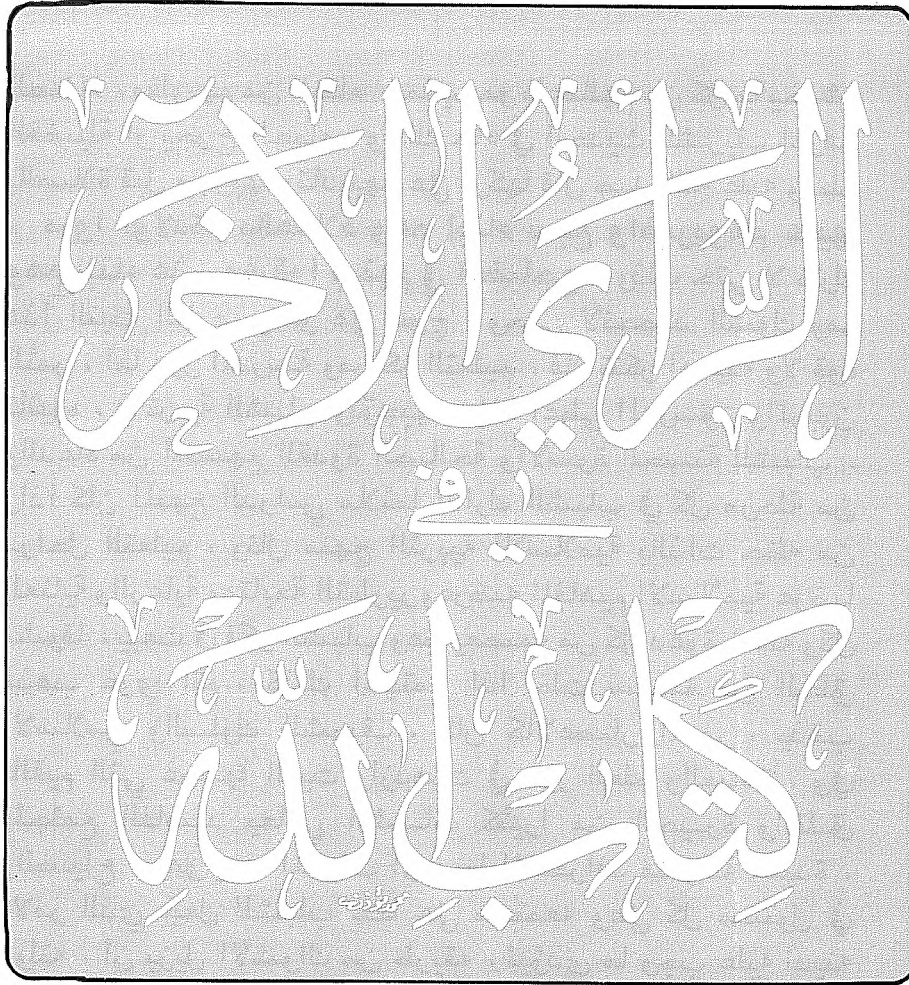 الرَّأيُ الآخر
في
كِتَابِ اللّهِ